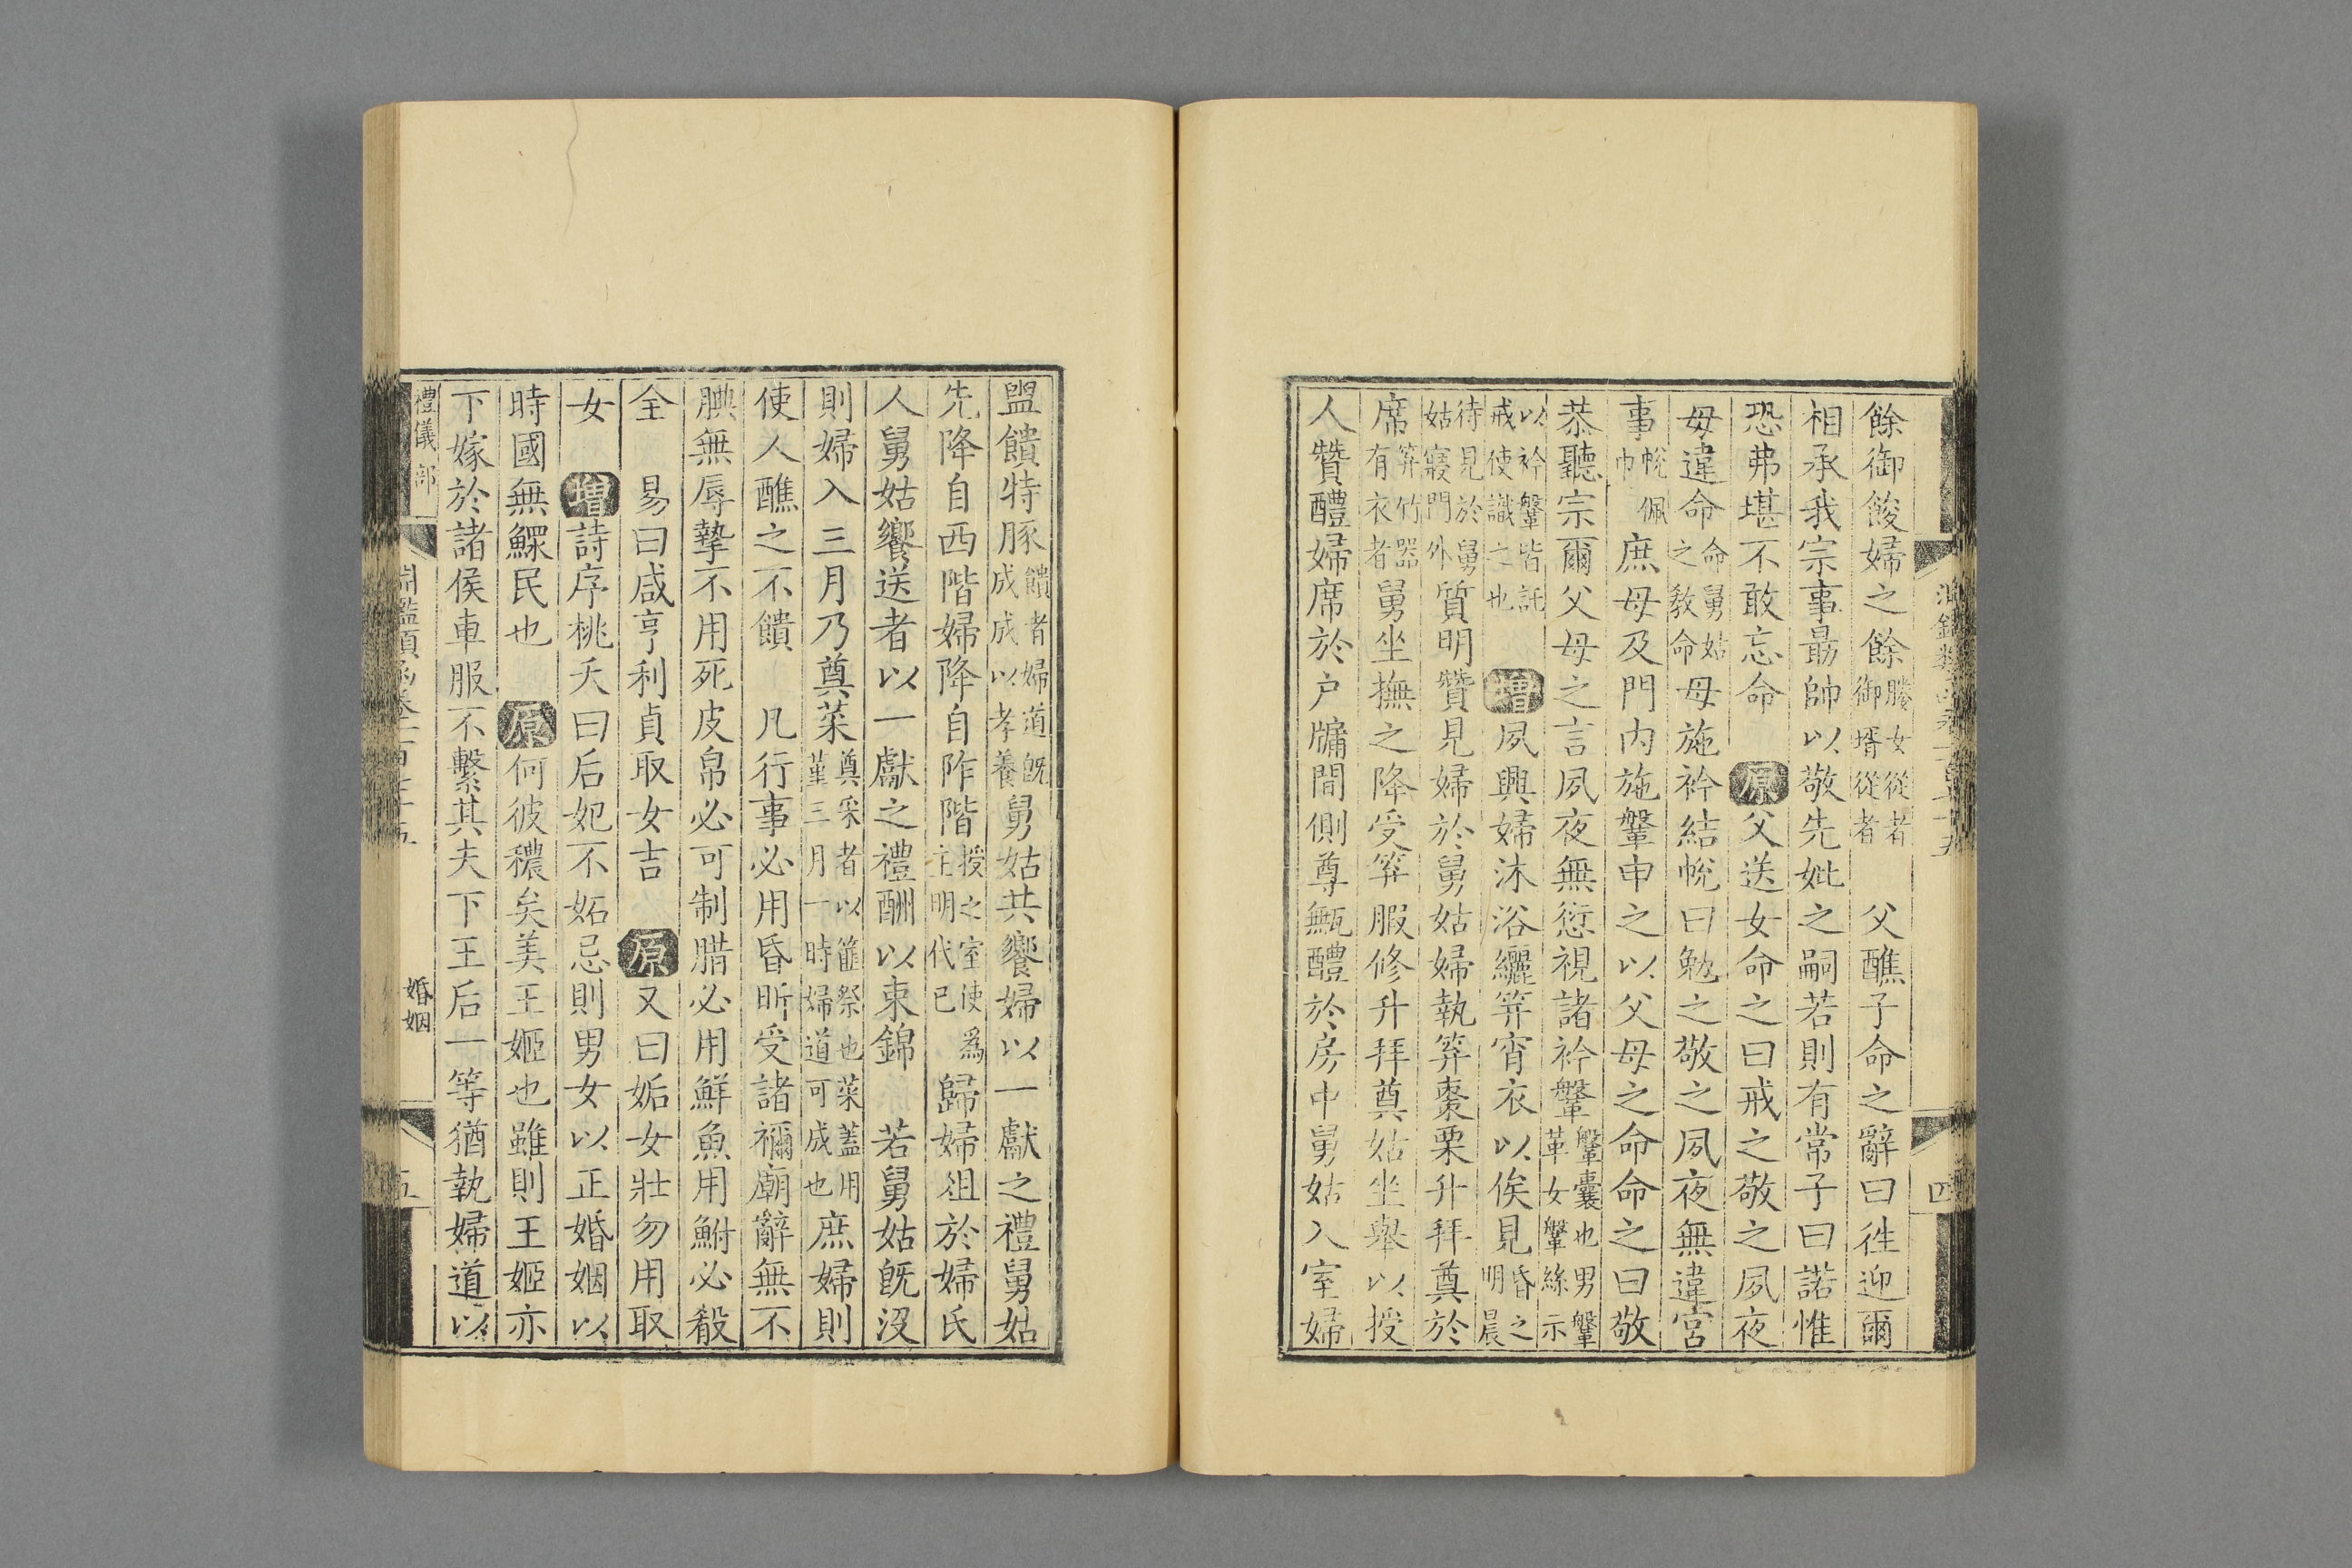 餘御餕婦之餘媵女從者御壻從者　父醮子命之辭曰徃迎爾
相承我宗事勗帥以敬先妣之嗣若則有常子曰諾惟
恐弗堪不敢忘命　原父送女命之曰戒之敬之夙夜
毋違命命舅姑之教命母施衿結帨曰勉之敬之夙夜無違宮
事帨佩巾庶母及門内施鞶申之以父母之命命之曰敬
恭聽宗爾父母之言夙夜無愆視諸衿鞶鞶囊也男鞶革女鞶絲示
以衿鞶皆託戒使識之也　增夙興婦沐浴纚笄宵衣以俟見昏之晨明
待見於舅姑寢門外質明贊見婦於舅姑婦執笲棗栗升拜奠於
席笲竹器有衣者舅坐撫之降受笲服修升拜奠姑坐舉以授
人贊醴婦席於户牖間側尊甒醴於房中舅姑入室婦
四
盥饋特豚饋者婦道既成成以孝養舅姑共饗婦以一獻之禮舅姑
先降自西階婦降自阼階授之室使爲主明代已歸婦俎於婦氏
人舅姑饗送者以一獻之禮酬以束錦　若舅姑既没
則婦入三月乃奠菜奠采者以篚祭也菜蓋用堇三月一時婦道可成也庶婦則
使人醮之不饋　凡行事必用昏昕受諸禰廟辭無不
腆無辱摯不用死皮帛必可制腊必用鮮魚用鮒必殽
全　易曰咸亨利貞取女吉　原又曰姤女壯勿用取
女　增詩序桃夭曰后妃不妬忌則男女以正婚姻以
時國無鰥民也　原何彼穠矣美王姬也雖則王姬亦
下嫁於諸侯車服不繫其夫下王后一等猶執婦道以
禮儀部
婚姻
五